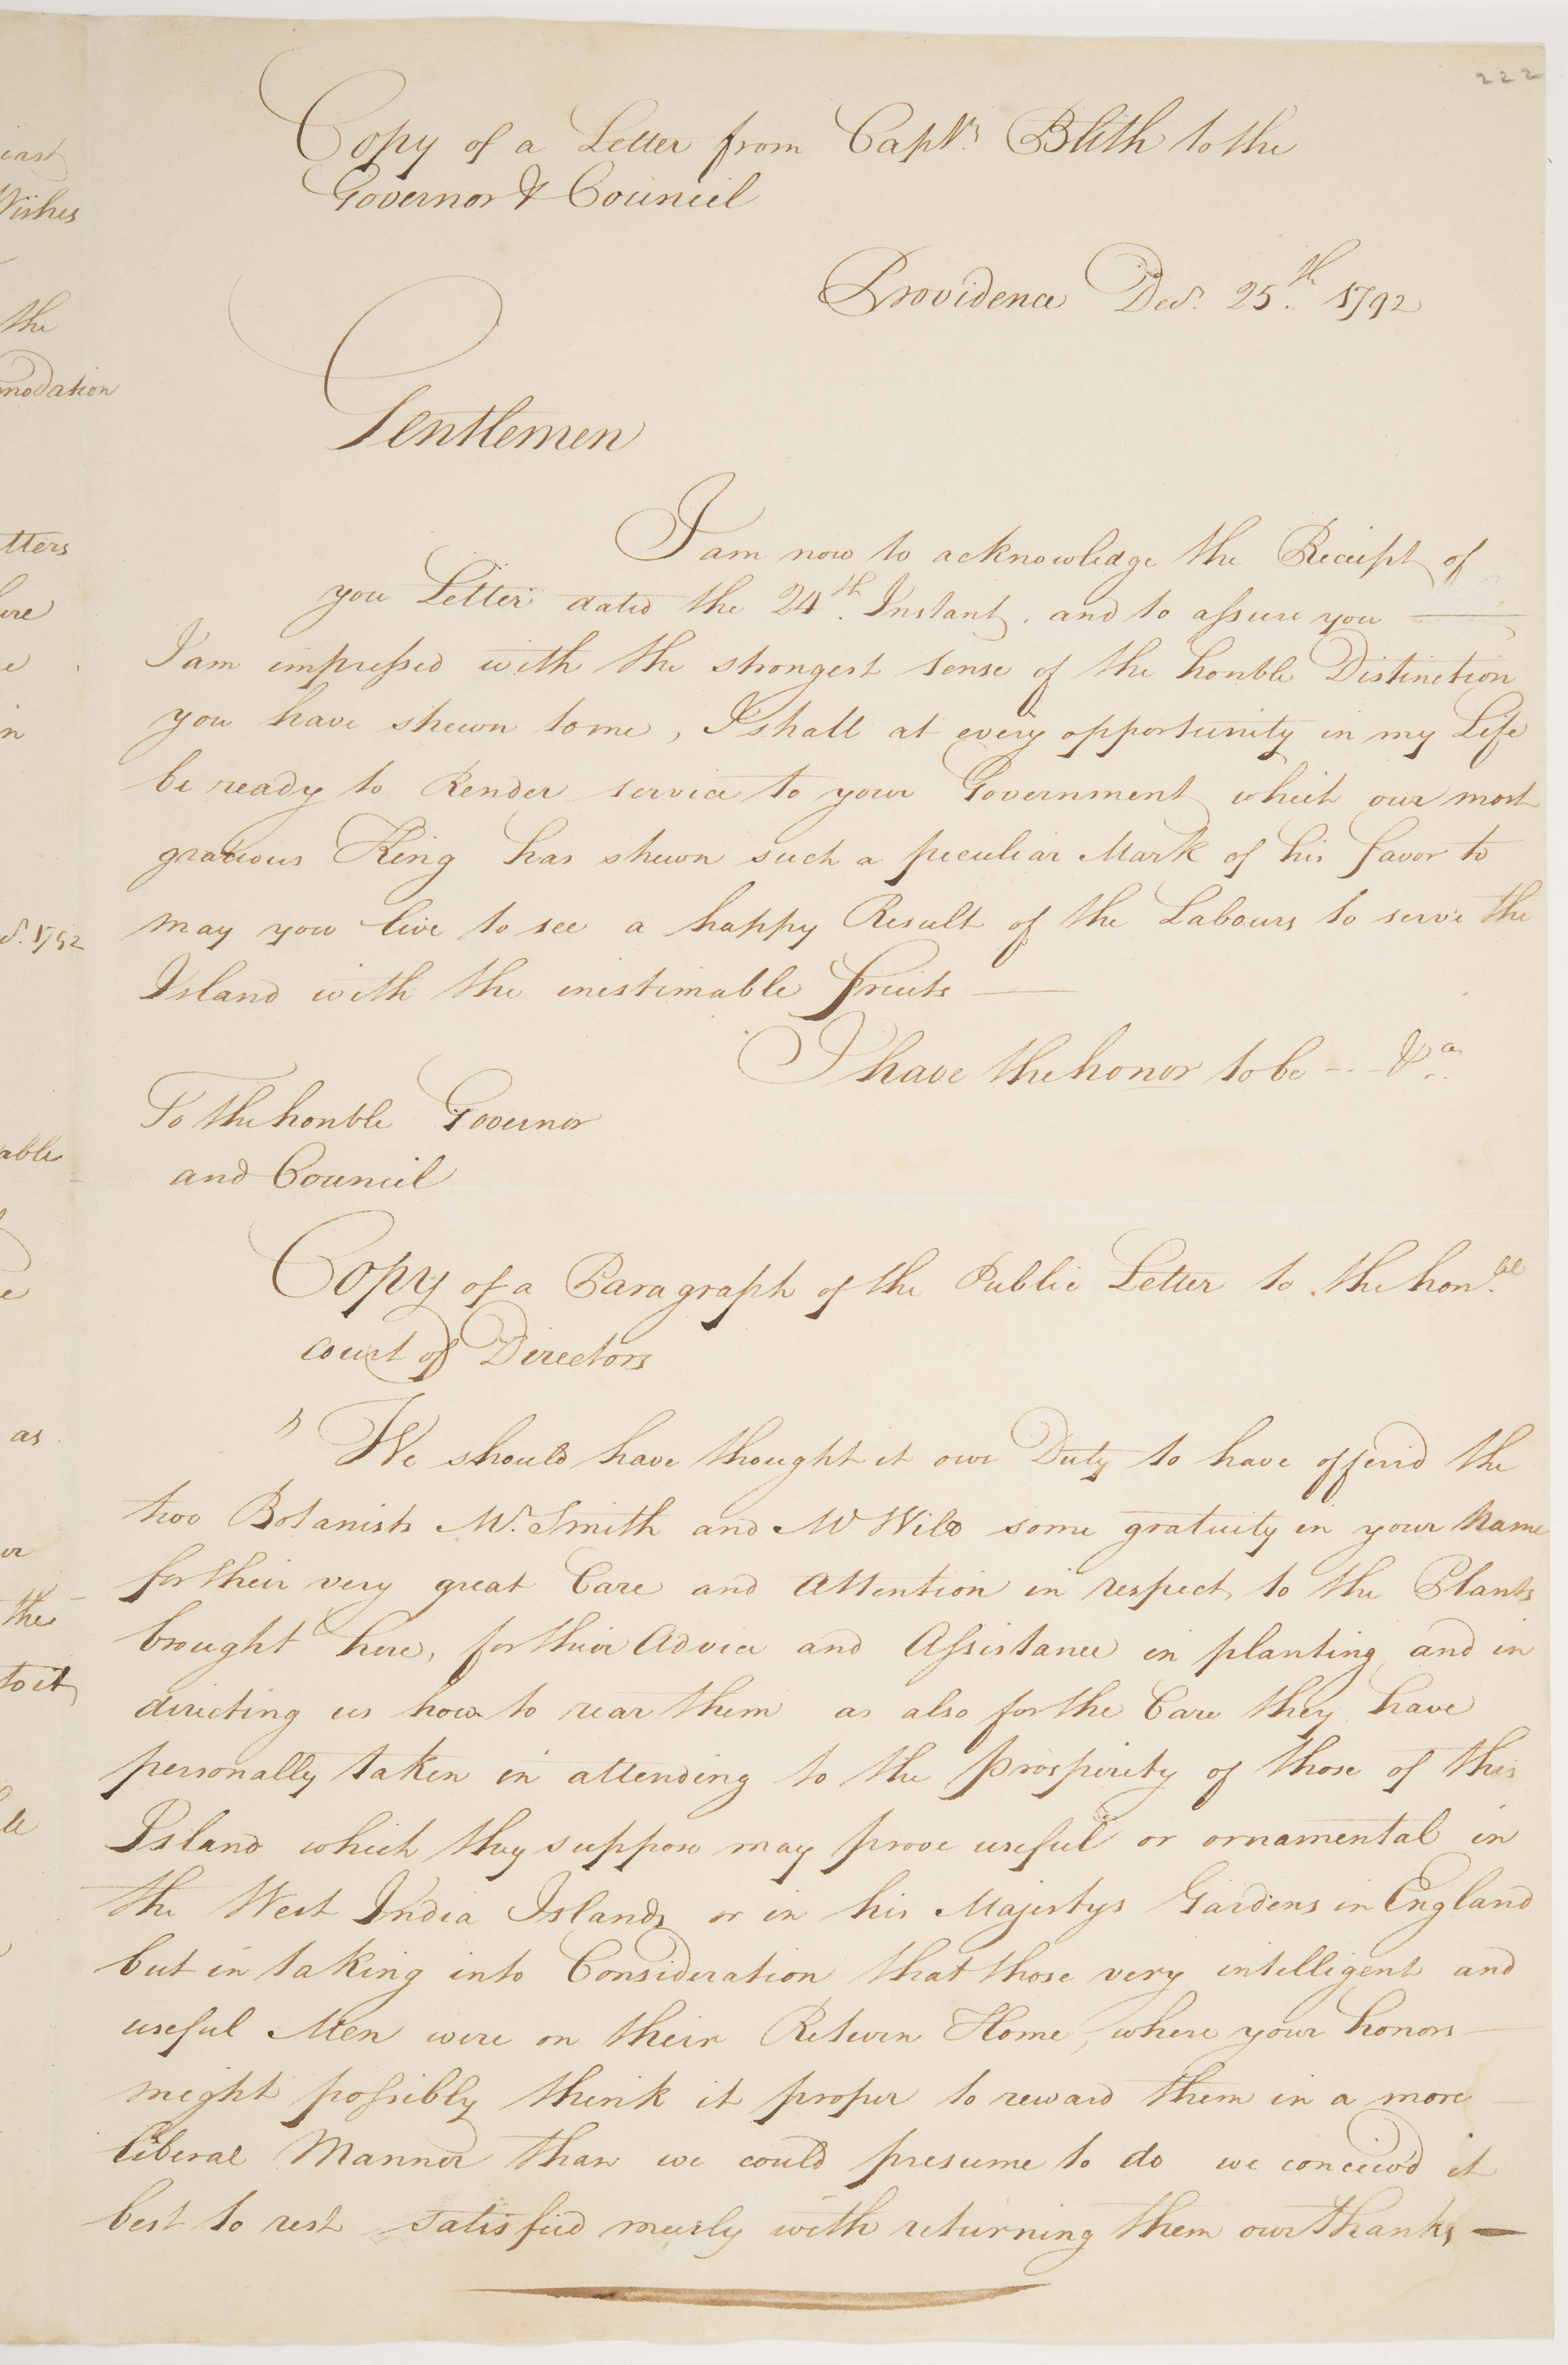 222
Copy of a Letter from Captn. Blith to the
Governor & Council
Providence Decr. 25th. 1792
Gentlemen
I am now to acknowledge the Receipt of
you Letter dated the 24th. Instant. and to assure you
I am impressed with the strongest sense of the honble Distinction
you have shewn to me, I shall at every opportunity in my Life
be ready to Render service to your Government which our most
gracious King has shewn such a peculiar Mark of his favor to
may you live to see a happy Result of the Labours to serve the
Island with the inestimable fruits —
I have the honor to be -- &a.
To the honble Governor
and Council
Copy of a Paragraph of the Public Letter to the honble.
court of Directors
" We should have thought it our Duty to have offer'd the
two Botanists Mr. Smith and Mr Wild some gratuity in your Name
for their very great Care and Attention in respect to the Plants
brought here, for their Advice and Assistance in planting and in
directing us how to rear them as also for the Care they have
personally taken in attending to the prosperity of those of this
Island which they suppose may prove useful or ornamental in
the West India Islands or in his Majestys Gardens in England
but in taking into Consideration that those very intelligent and
useful Men were on their Return Home, where your honors
might possibly think it proper to reward them in a more
liberal Manner than we could presume to do we conceiv'd it
best to rest satisfied meerly with returning them our thanks —
iast
Wishes
the
modation
tters
ere
e
in
r. 1792
able
e
as
or
the
to it
le